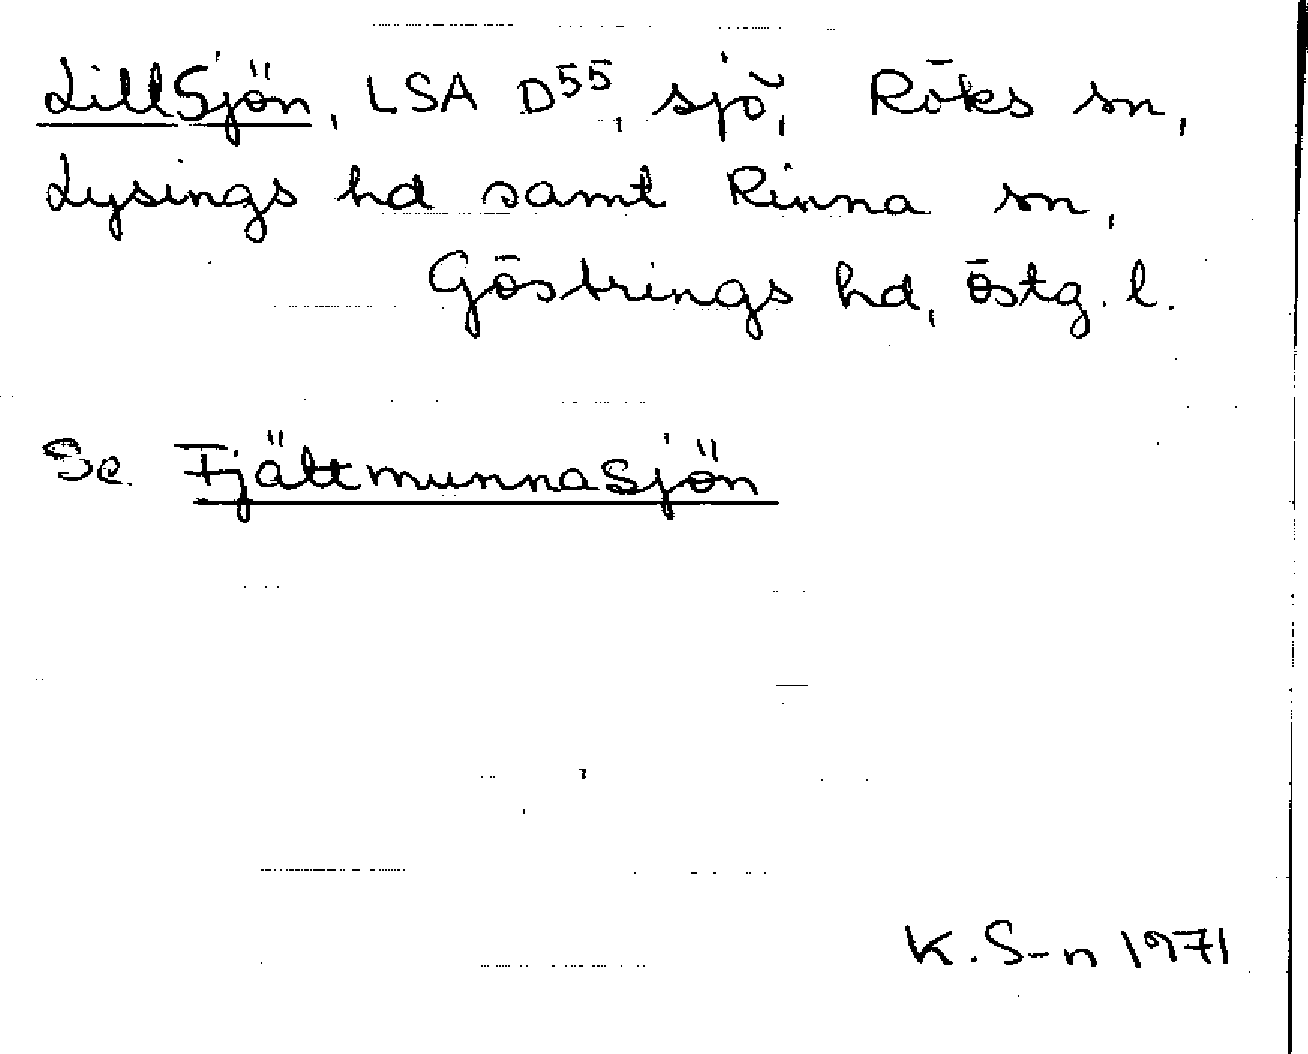 LillSjön, LSA D55, sjö, Röks sn,
Lysings hd samt Rinna sn,
Göstrings hd, Östg. l.
Se. FjättmunnaSjön
K. S-n 1971